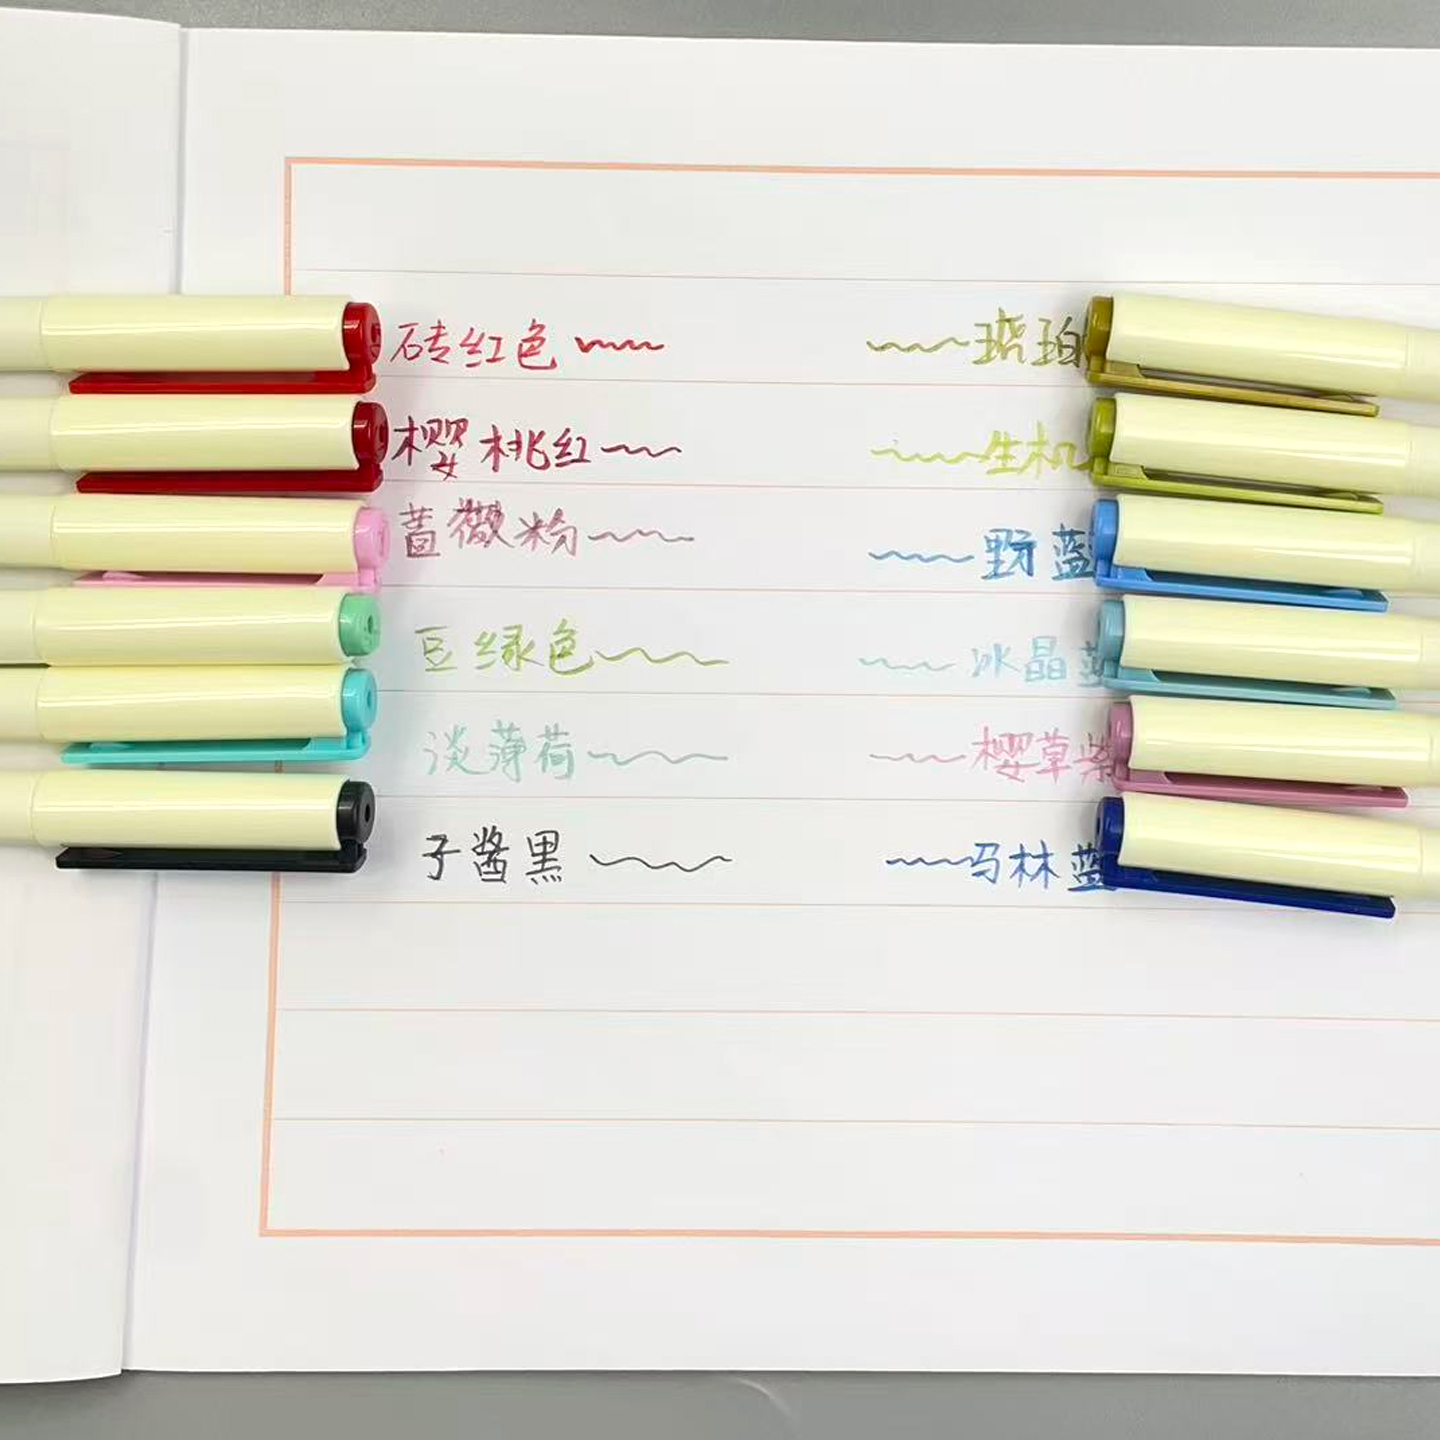 砖红色
樱桃红
蔷薇粉
豆绿色
淡薄荷
子酱黑
琥珀
生机
野蓝
冰晶蓝
樱草紫
马林蓝